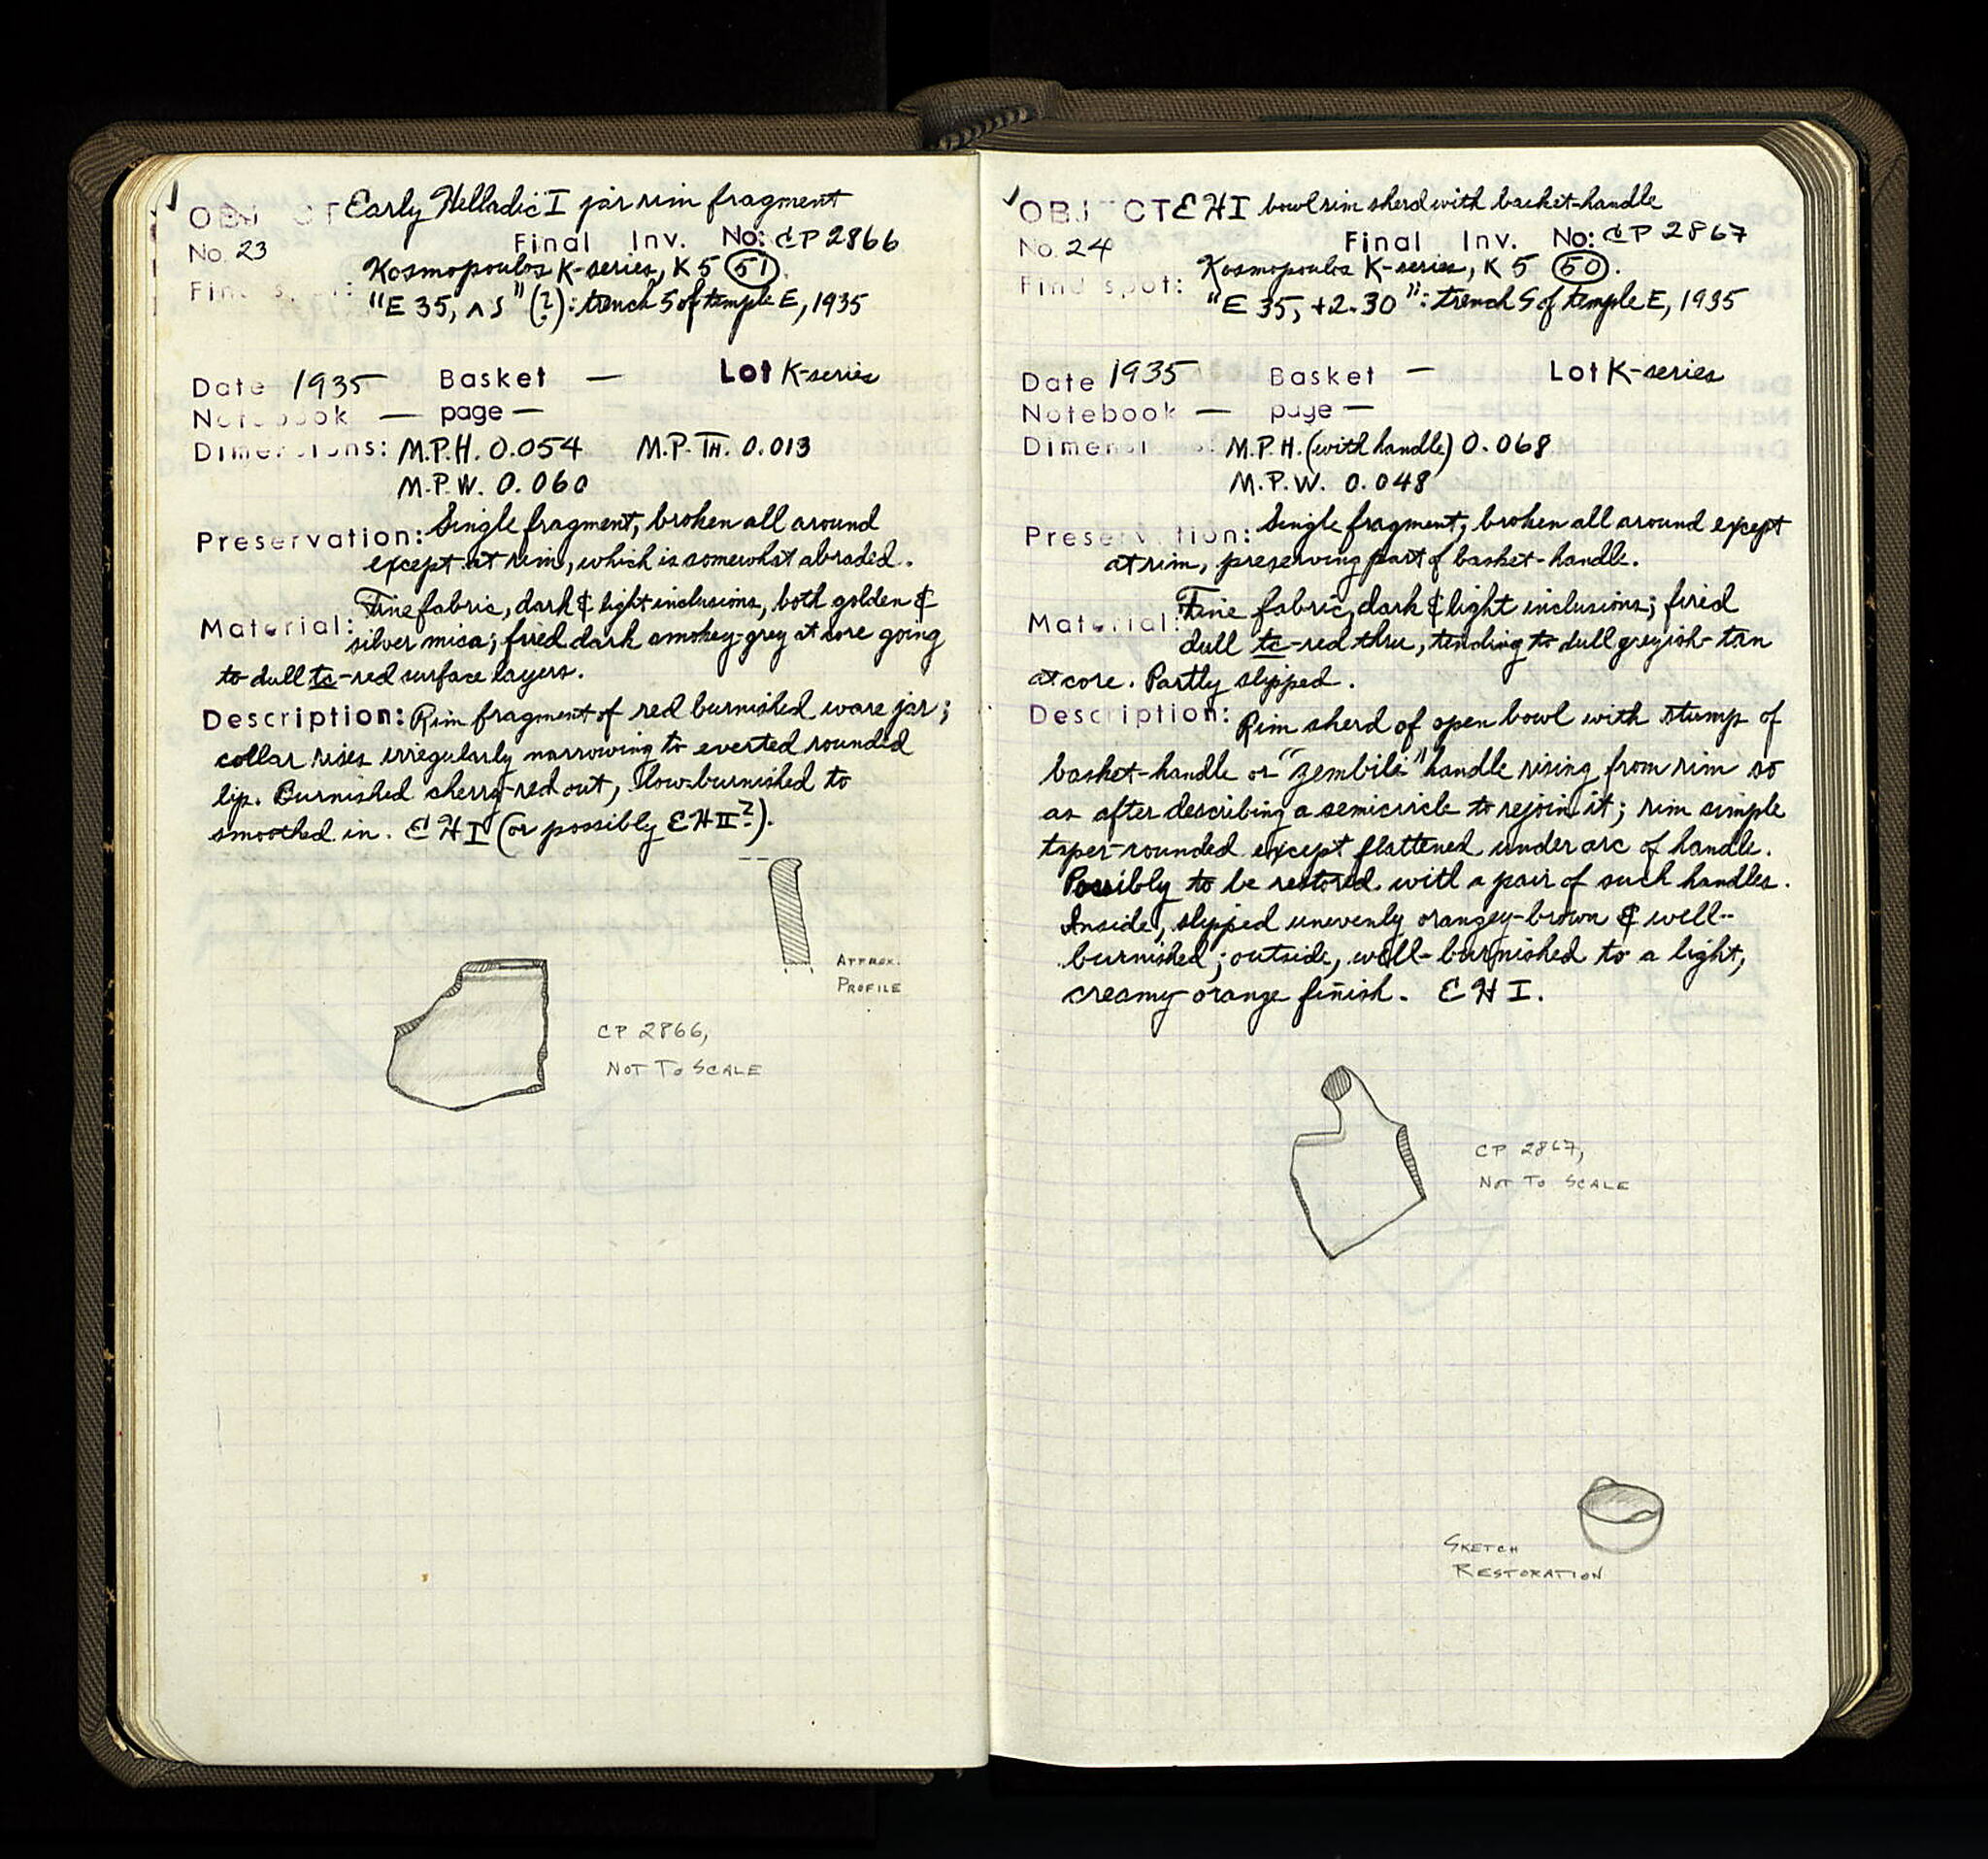 OBJECT Early Helladic I jar rim fragment
No. 23 Final Inv. No: CP 2866
Find spot: Kosmopoulos K-series, K 5 (51).
"E 35, ∧ S" (?): trench S of temple E, 1935
Date 1935 Basket — Lot K-series
Notebook — page —
Dimensions: M.P.H. 0.054 M.P.TH. 0.013
M.P.W. 0.060
Preservation: Single fragment, broken all around
except at rim, which is somewhat abraded.
Material: Fine fabric, dark & light inclusions, both golden &
silver mica; fired dark smokey-grey at core going
to dull tc-red surface layers.
Description: Rim fragment of red burnished ware jar;
collar rises irregularly narrowing to everted rounded
lip. Burnished cherry-red out, low-burnished to
smoothed in. EH I (or possibly EH II?).
APPROX.
PROFILE
CP 2866,
NOT TO SCALE
OBJECT EHI bowl rim sherd with basket-handle
No. 24 Final Inv. No: CP 2867
Find spot: Kosmopoulos K-series, K 5 (50).
"E 35, +2.30": trench S of temple E, 1935
Date 1935 Basket — Lot K-series
Notebook — page —
Dimensions: M.P.H. (with handle) 0.068
M.P.W. 0.048
Preservation: Single fragment, broken all around except
at rim, preserving part of basket-handle.
Material: Fine fabric, dark & light inclusions; fired
dull tc-red thru, tending to dull greyish-tan
at core. Partly slipped.
Description: Rim sherd of open bowl with stump of
basket-handle or "zembili" handle rising from rim so
as after describing a semicircle to rejoin it; rim simple
taper-rounded except flattened under arc of handle.
Possibly to be restored with a pair of such handles.
Inside, slipped unevenly orangey-brown & well-
burnished; outside, well-burnished to a light,
creamy orange finish. EH I.
CP 2867,
NOT TO SCALE
SKETCH
RESTORATION